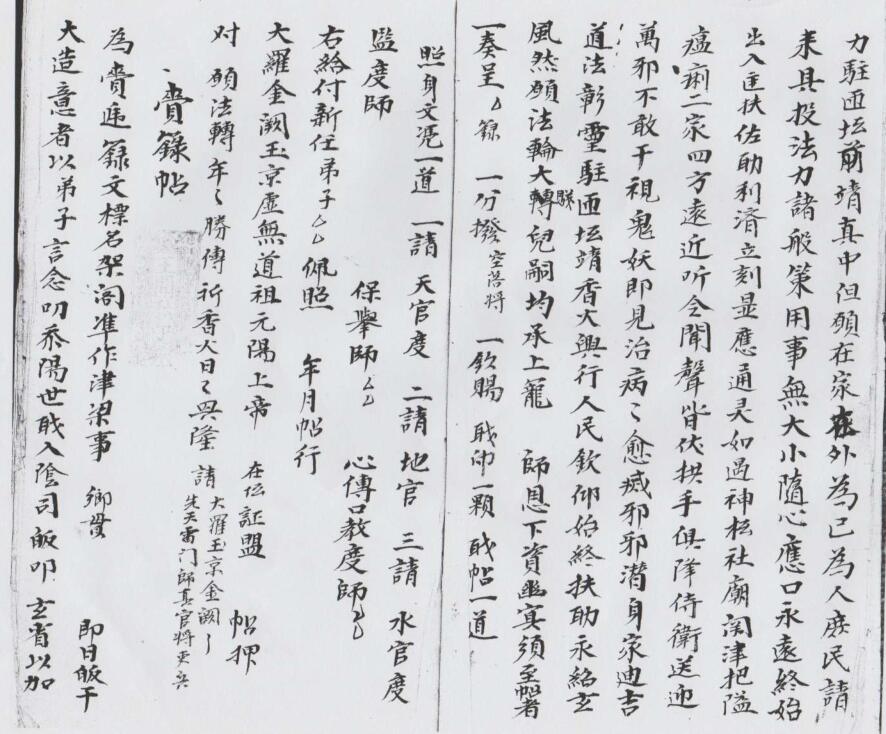 力駐迊坛前靖真中但願在家在外為已為人庶民請
耒具投法力諸般第用事無大小隨心應口永遠終始
出入匡扶佐助利濟立刻显應通灵如過神松社廟関津把隘
瘟痢二家四方遠近听令聞聲皆伏拱手俱降侍衛送迎
萬邪不敢干視鬼妖即見治病〻愈滅邪邪潜身家迪吉
道法彰靈駐迊坛靖香火興行人民欽仰始終扶助永紹玄
風然願法輪大轉兒嗣均承上寵 師恩下資幽冥須至帖者
一奏呈〻錄 一分撥空菩將 一欽賜 职印一顆 职帖一道
照身文凭一道 一請 天官度 二請 地官 三請 水官度
監度師 保舉師〻〻 心傳口教度師〻〻
右給付新任弟子〻〻佩照 年月帖行
大羅金阙玉京虛無道祖元陽上帝 在伝証盟 帖押
对 願法轉年〻勝傳祈香火日〻興隆 請 大羅玉京金阙〻
先天雷门師真官將吏兵
賫錄帖
為賫進錄文標名架阁準作津梁事 鄉貫 即日皈干
大造意者以弟子言念叨忝陽世职入陰司皈叩 玄省以加